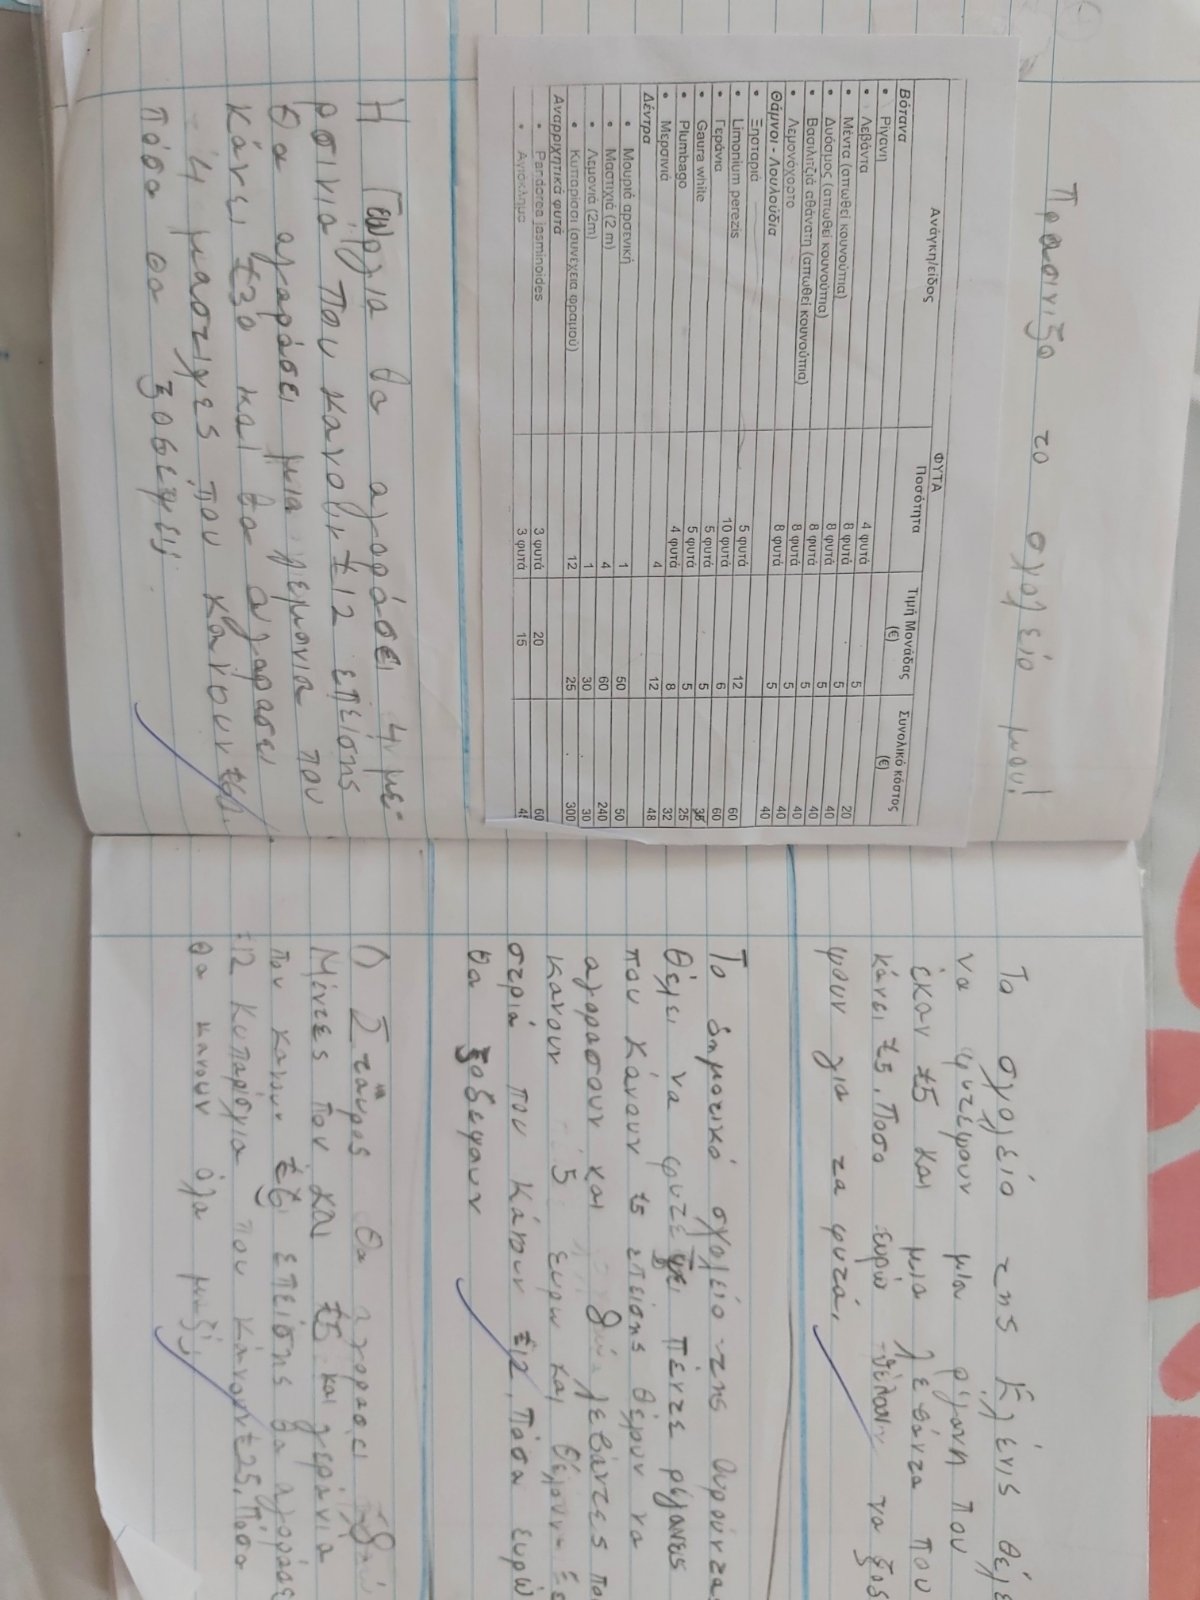 Πρασινίζο το σχολείο μου!
ΦΥΤΑ
Ανάγκη/είδος Ποσότητα Τιμή Μονάδας (€) Συνολικό κόστος (€)
Βότανα
• Ρίγανη 4 φυτά 5 20
• Λεβάντα 8 φυτά 5 40
• Μέντα (απωθεί κουνούπια) 8 φυτά 5 40
• Δυόσμος (απωθεί κουνούπια) 8 φυτά 5 40
• Βασιλιτζιά αθάνατη (απωθεί κουνούπια) 8 φυτά 5 40
• Λεμονόχορτο 8 φυτά 5 40
Θάμνοι - Λουλούδια
• Ξησταριά 5 φυτά 12 60
• Limonium perezis 10 φυτά 6 60
• Γεράνια 5 φυτά 5
• Gaura white 5 φυτά 5 25
• Plumbago 4 φυτά 8 32
• Μερσινιά 4 12 48
Δέντρα
• Μουριά αρσενική 1 50 50
• Μαστιχιά (2 m) 4 60 240
• Λεμονιά (2m) 1 30 30
• Κυπαρίσσι (συνέχεια φραμού) 12 25 300
Αναρριχητικά φυτά
• Pandorea jasminoides 3 φυτά 20 60
• Αγιόκλημα 3 φυτά 15 45
Η Γεωργία θα αγοράσει 4 με-
ρσινιά που κανουν €12 επείσης
θα αγοράσει μια λεμονια που
κάνει €30 και θα αγορασει
4 μαστιχες που κάνουν
πόσα θα ξοδεψει;
Το σχολείο της Ελένις θέλε
να φυτέψουν μια ρίγανη που
έκαν €5 και μια λεβάντα που
κάνει €5. Ποσα ευρώ θέλουν να ξοδ
ψουν για τα φυτά.
Το δημοτικό σχολείο της
θέλει να φυτέψει πέντε ρίγανεις
που κάνουν €5 επείσης θέλουν να
αγορασουν και λεβάντες πο
κανουν 5 ευρω και θέλουν
στεριά που κάνουν €12. Πόσα ευρώ
θα ξοδεψουν
Ο Σταύρος θα αγορασει
Μέντες που και €5 και γεράνια
που κανουν €6 επείσης θα αγοράσε
12 κυπαρίσσια που κάνουν €25. Πόσα
θα κανουν όλα μαζί;